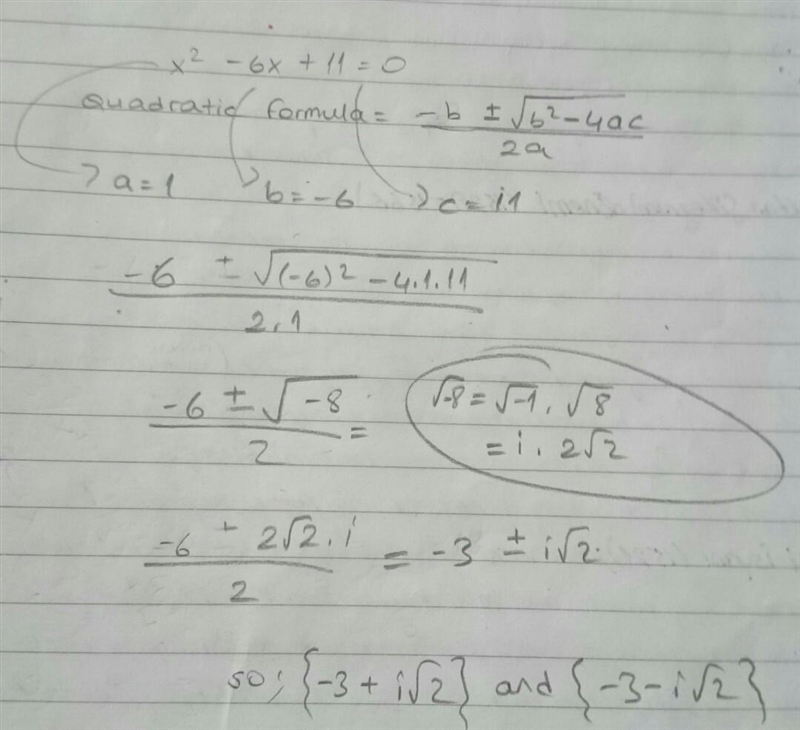 x² - 6x + 11 = 0
Quadratic formula = (-b ± √(b² - 4ac)) / 2a
a = 1 b = -6 c = 11
(-6 ± √((-6)² - 4.1.11)) / 2.1
(-6 ± √-8) / 2 =
√-8 = √-1 . √8
= i . 2√2
(-6 ± 2√2 . i) / 2 = -3 ± i√2
so; {-3 + i√2} and {-3 - i√2}